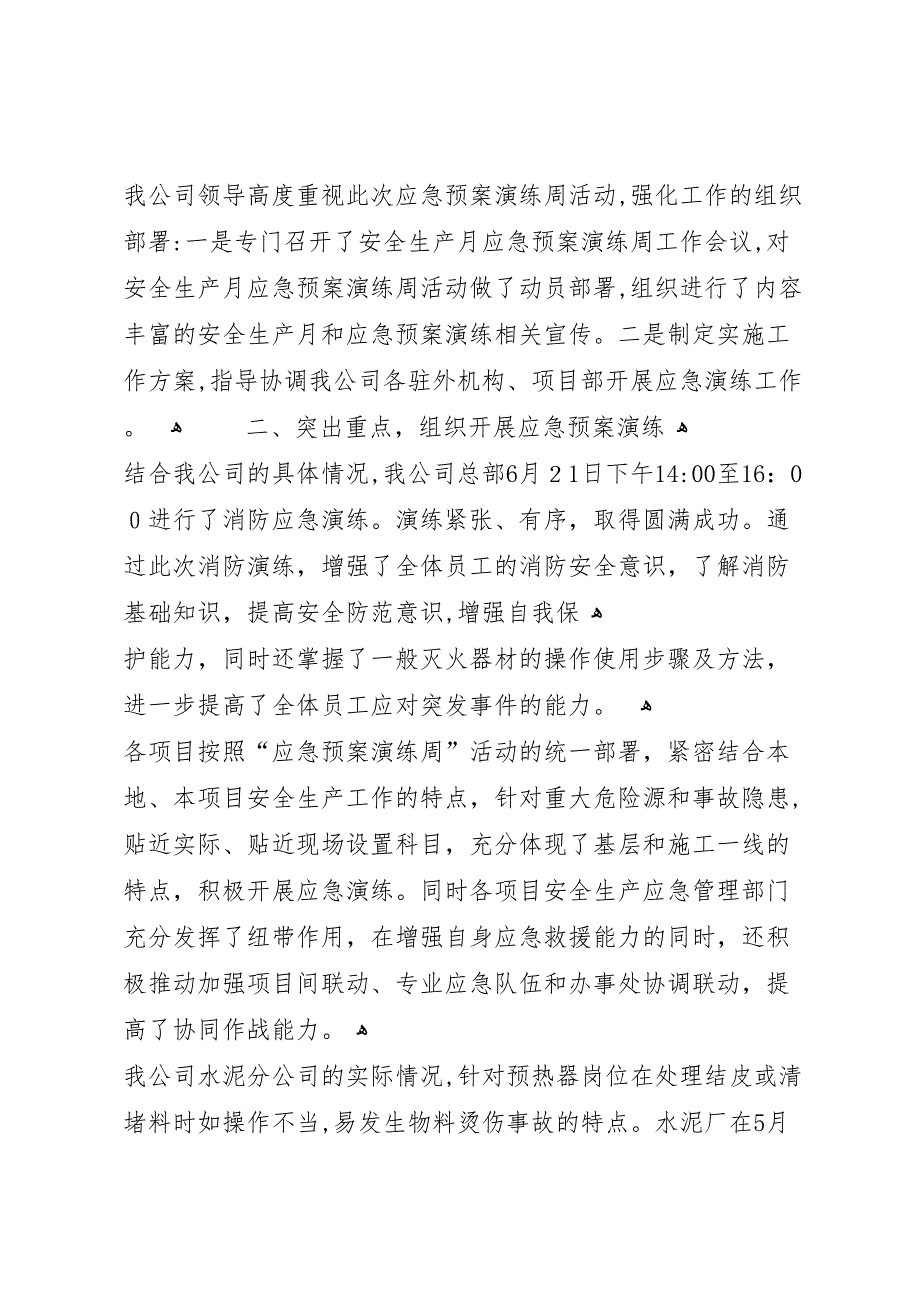 我公司领导高度重视此次应急预案演练周活动,强化工作的组织
部署:一是专门召开了安全生产月应急预案演练周工作会议,对
安全生产月应急预案演练周活动做了动员部署,组织进行了内容
丰富的安全生产月和应急预案演练相关宣传。二是制定实施工
作方案,指导协调我公司各驻外机构、项目部开展应急演练工作
。 ﻫ 二、突出重点，组织开展应急预案演练 ﻫ
结合我公司的具体情况,我公司总部6月２1日下午14:00至16：0
０进行了消防应急演练。演练紧张、有序，取得圆满成功。通
过此次消防演练，增强了全体员工的消防安全意识，了解消防
基础知识，提高安全防范意识,增强自我保 ﻫ
护能力，同时还掌握了一般灭火器材的操作使用步骤及方法，
进一步提高了全体员工应对突发事件的能力。 ﻫ
各项目按照“应急预案演练周”活动的统一部署，紧密结合本
地、本项目安全生产工作的特点，针对重大危险源和事故隐患,
贴近实际、贴近现场设置科目，充分体现了基层和施工一线的
特点，积极开展应急演练。同时各项目安全生产应急管理部门
充分发挥了纽带作用，在增强自身应急救援能力的同时，还积
极推动加强项目间联动、专业应急队伍和办事处协调联动，提
高了协同作战能力。 ﻫ
我公司水泥分公司的实际情况,针对预热器岗位在处理结皮或清
堵料时如操作不当,易发生物料烫伤事故的特点。水泥厂在5月